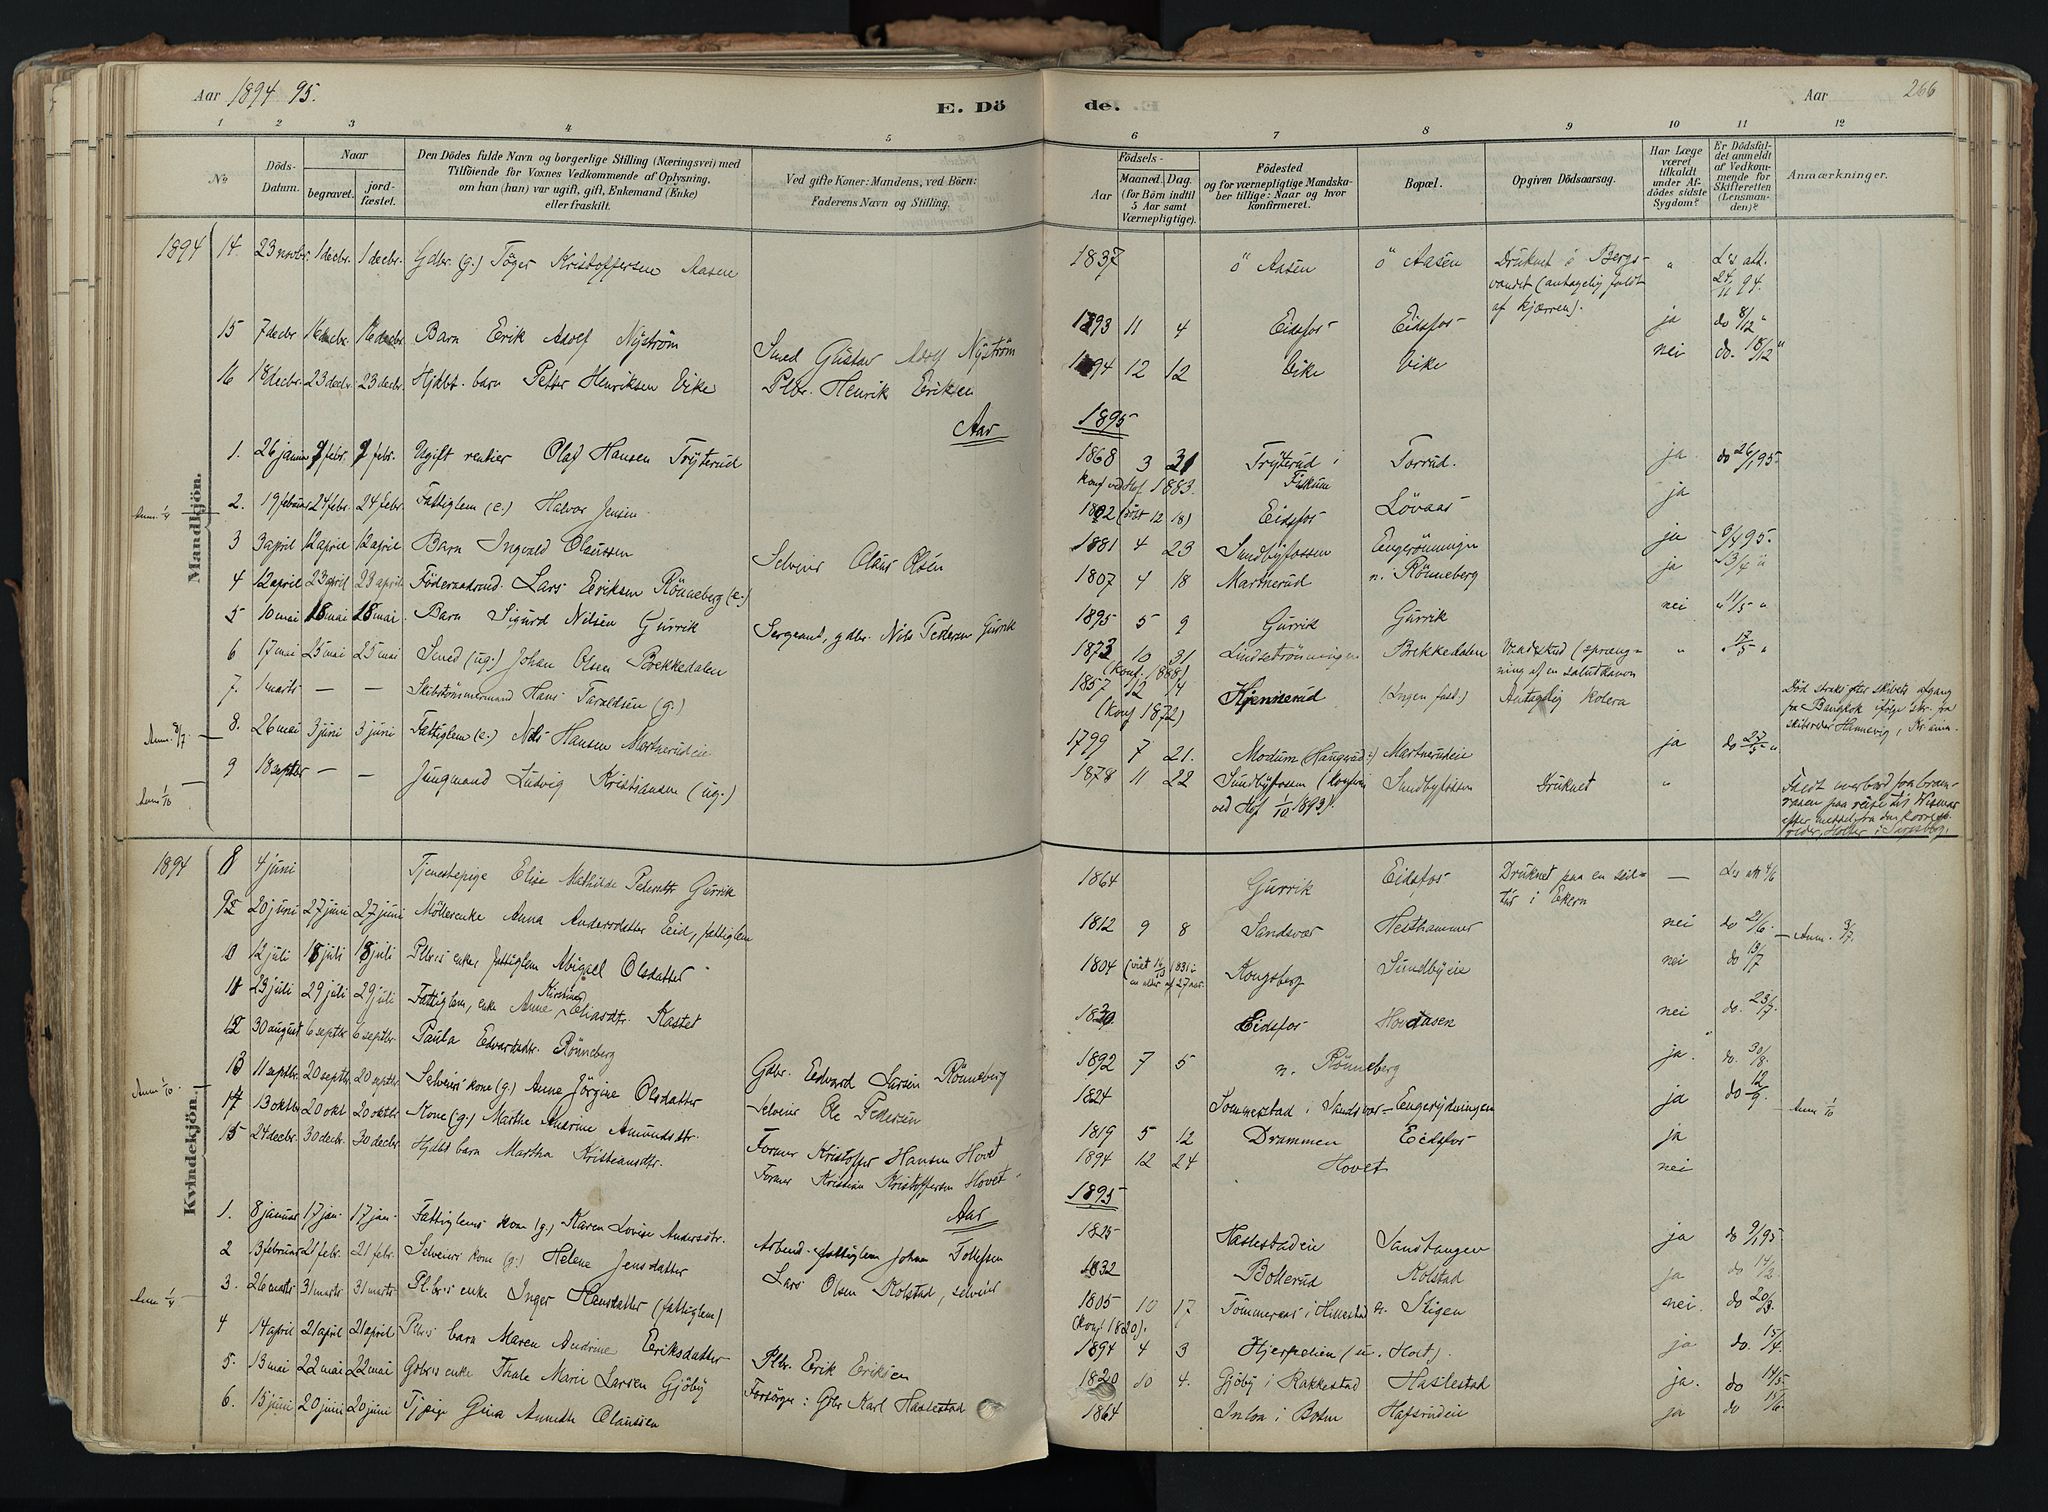 Aar 1894 95.
E. Dö
de.
Aar
266
1 2 3 4 5 6 7 8 9 10 11 12
No
Döds-Datum.
Naar
begravet.
jord-fæstet.
Den Dödes fulde Navn og borgerlige Stilling (Næringsvei) med
Tilföiende for Voxnes Vedkommende af Oplysning,
om han (hun) var ugift, gift, Enkemand (Enke)
eller fraskilt.
Ved gifte Koner: Mandens, ved Börn:
Faderens Navn og Stilling.
Födsels-
Aar
Maaned
Dag
(for Börn indtil
5 Aar samt
Værnepligtige).
Födested
og for værnepligtige Mandska-
ber tillige: Naar og hvor
konfirmeret.
Bopæl.
Opgiven Dödsaarsag.
Har Læge
været
tilkaldt
under Af-
dödes sidste
Sygdom?
Er Dödsfal-
det anmeldt
af Vedkom-
mende for
Skifteretten
(Lensman-
den)?
Anmærkninger.
Mandkjön.
1894 14. 23 novbr. 1 decbr. 1 decbr. Gdbr (g.) Töger Kristoffersen Aasen 1837 ö Aasen ö Aasen Druknet i Bergs- " L's att.
vandet (antagelig faldt 24/11 94.
af kjærren).
15 7 decbr 16 decbr. 16 decbr. Barn Erik Adolf Nyström Smed Gustav Adolf Nyström 1893 11 4 Eidsfos Eidsfos ja do 8/12 "
16 18 decbr. 23 decbr. 23 decbr. Hjdöbt. barn Petter Henriksen Vike Plbr. Henrik Eriksen 1894 12 12 Vike Vike nei do. 18/12 "
Aar 1895
1. 26 januar febr. febr. Ugift rentier Olaf Hansen Tryterud 1868 3 31 Tryterud i Fiskum Torrud. ja do 26/1 95.
Konf ved Hof 1883.
Anm. 1/4 2. 19 februar 24 febr. 24 febr. Fattiglem (e.) Halvor Jensen (döbt 12 18) Eidsfos Lövaas ja
3 3 april 12 april 12 april Barn Ingvald Olaussen Selveier Olaus Olsen 1881 4 23 Sundbyfossen Engerönningen ja 6/4 95.
4 12 april 23 april 23 april Föderaadsmd. Lars Eriksen Rönneberg (e.) 1807 4 18 Martnerud n. Rönneberg ja " 13/4 "
5 10 mai 18 mai 18 mai. Barn Sigurd Nilsen Gurrik Sergeant, gdbr. Nils Pedersen Gurrik 1895 5 9 Gurrik Gurrik nei " 11/5 "
6 17 mai 25 mai 25 mai Smed (ug.) Johan Olsen Brekkedalen 1873 10 31 Brekkedalen Vaadeskud (spræng- " 17/5 "
(Konf. 1888) ning af en salutkanon
7. 1 marts — — Skibstömmermand Hans Taraldsen (g.) 1857 12 14 Kjennerud (Ingen fast.) Antagelig kolera Död straks efter skibets afgang
fra Bangkok ifölge skr. fra
skibsreder Hannevig, Kr.ania.
(Konf 1872)
Anm. 8/7 8. 26 mai 3 juni 3 juni Fattiglem (e.) Nils Hansen Martnerudeie 1799 7 21. Modum (Haugrud) Martnerudeie ja do 27/5 "
Anm 1/10 9 18 septbr — — Jungmand Ludvig Kristiansen (ug.) 1878 11 22 Sundbyfossen Sundbyfossen Druknet "
ved Hof 1/10 1893).
Faldt overbord fra bram-
raaen paa reise til Wismar
efter meddel. fra den korresp.
reder,
Kvindekjön.
1894 8 4 juni Tjenestepige Elise Mathilde Pedersdtr Gurrik 1864 Gurrik Eidsfos Druknet paa en seil- — L's att 4/6
tur i Ekern
9 20 juni 27 juni 27 juni Möllerenke Anna Andersdatter Eid, fattiglem 1812 9 8 Sandsvær Hesthammer nei do 21/6. — Anm. 8/7.
10 12 juli 18 juli 18 juli Plbrs enke, fattiglem Abigael Olsdatter 1804 Kongsberg Sundbyeie nei do 13/7
11 23 juli 29 juli 29 juli Fattiglem, enke Anne Kirstine Kastet 1830 Eidsfos Hovdaasen nei do. 23/7.
12 30 august 6 septbr 6 septbr. Paula Edvardsdtr. Rönneberg Gdbr. Edvard Larsen Rönneberg 1892 7 5 n. Rönneberg ja. do. 30/8.
Anm 1/10. 13 11 septbr. 20 septbr 20 septbr. Selveiers kone (g.) Anne Jörgine Olsdatter Selveier Ole Pedersen 1824 Sommerstad i Sandsvær Engerydningen ja do 12/9. — Anm 1/10
14 13 oktbr 20 okt 20 oktbr. Kone (g.) Marthe Andrine Amundsdtr. Former Kristoffer Hansen Hovet 1819 5 12 Drammen Eidsfos ja
15 24 decbr. 30 decbr. 30 decbr. Hjdöbt barn Martha Kristiansdtr. Former Kristian Kristoffersen Hovet 1894 12 24 Hovet nei
Aar 1895
1. 8 januar 17 jan. 17 jan. Fattiglems kone (g.) Karen Lovise Andersdtr. Arbeid. fattiglem Johan Tollefsen 1825 Haslestadeie Sandtangen ja do 9/1 95
2 13 februar 21 febr. 21 febr. Selveiers kone (g.) Helene Jensdatter Lars Olsen Kolstad, selveier 1832 Bollerud Kolstad ja do 14/2
Anm 1/4 3. 26 marts 31 marts 31 marts Pl.brs enke Inger Hansdatter (fattiglem) 1805 10 17 Tömmeraas i Hillestad n. Stigen nei. do 20/3.
(konf. 1820).
4 14 april 21 april 21 april Plbrs barn Maren Andrine Eriksdatter Plbr. Erik Eriksen 1894 4 3 Hjerpelien (u. Hovt). ja do. 15/4.
5. 13 mai 22 mai 22 mai Gdbrs enke Thale Marie Larsen Gjöby Forsörger: Gdbr Karl Haslestad 1820 10 4. Gjöby i Rakkestad Haslestad ja. do 14/5.
6. 15 juni 20 juni 20 juni Tj.pige Gina Annette Olaussen 1864 i Botne Hafsrudeie ja do 15/6.